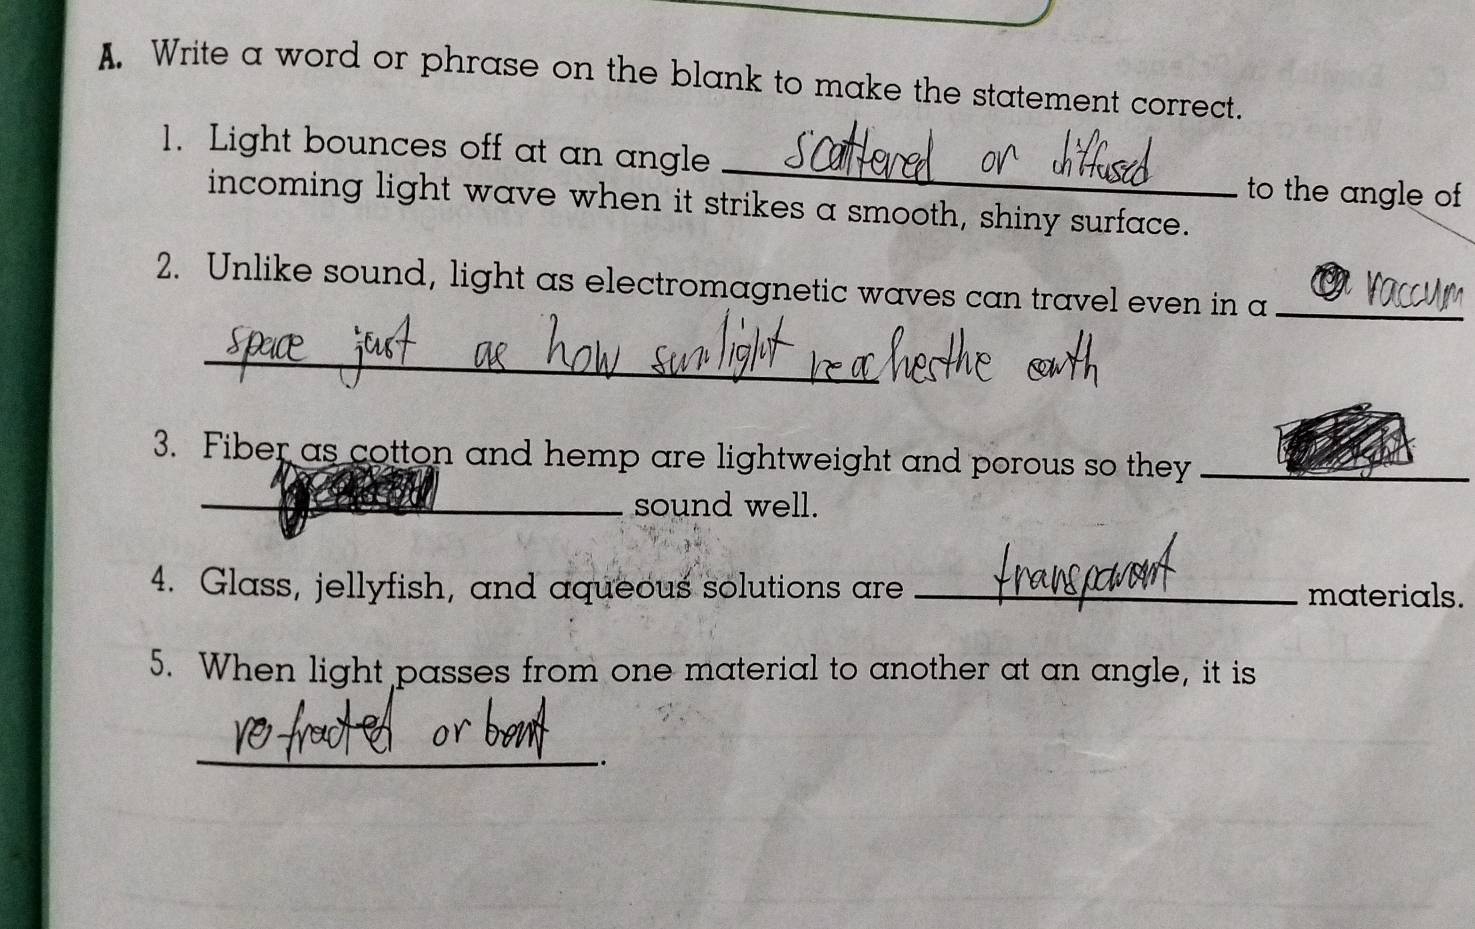 A. Write a word or phrase on the blank to make the statement correct.
1. Light bounces off at an angle scattered or diffused to the angle of
incoming light wave when it strikes a smooth, shiny surface.
2. Unlike sound, light as electromagnetic waves can travel even in a vaccum
space just as how sunlight reaches the earth
3. Fiber as cotton and hemp are lightweight and porous so they
sound well.
4. Glass, jellyfish, and aqueous solutions are transparent materials.
5. When light passes from one material to another at an angle, it is
refracted or bent.